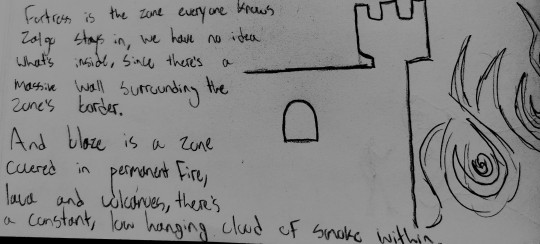 Fortress is the zone everyone knows
Zalgo stays in, we have no idea
what's inside, since there's a
massive wall surrounding the
zone's border.
And blaze is a zone
covered in permanent fire,
lava and volcanoes, there's
a constant, low hanging cloud of smoke within